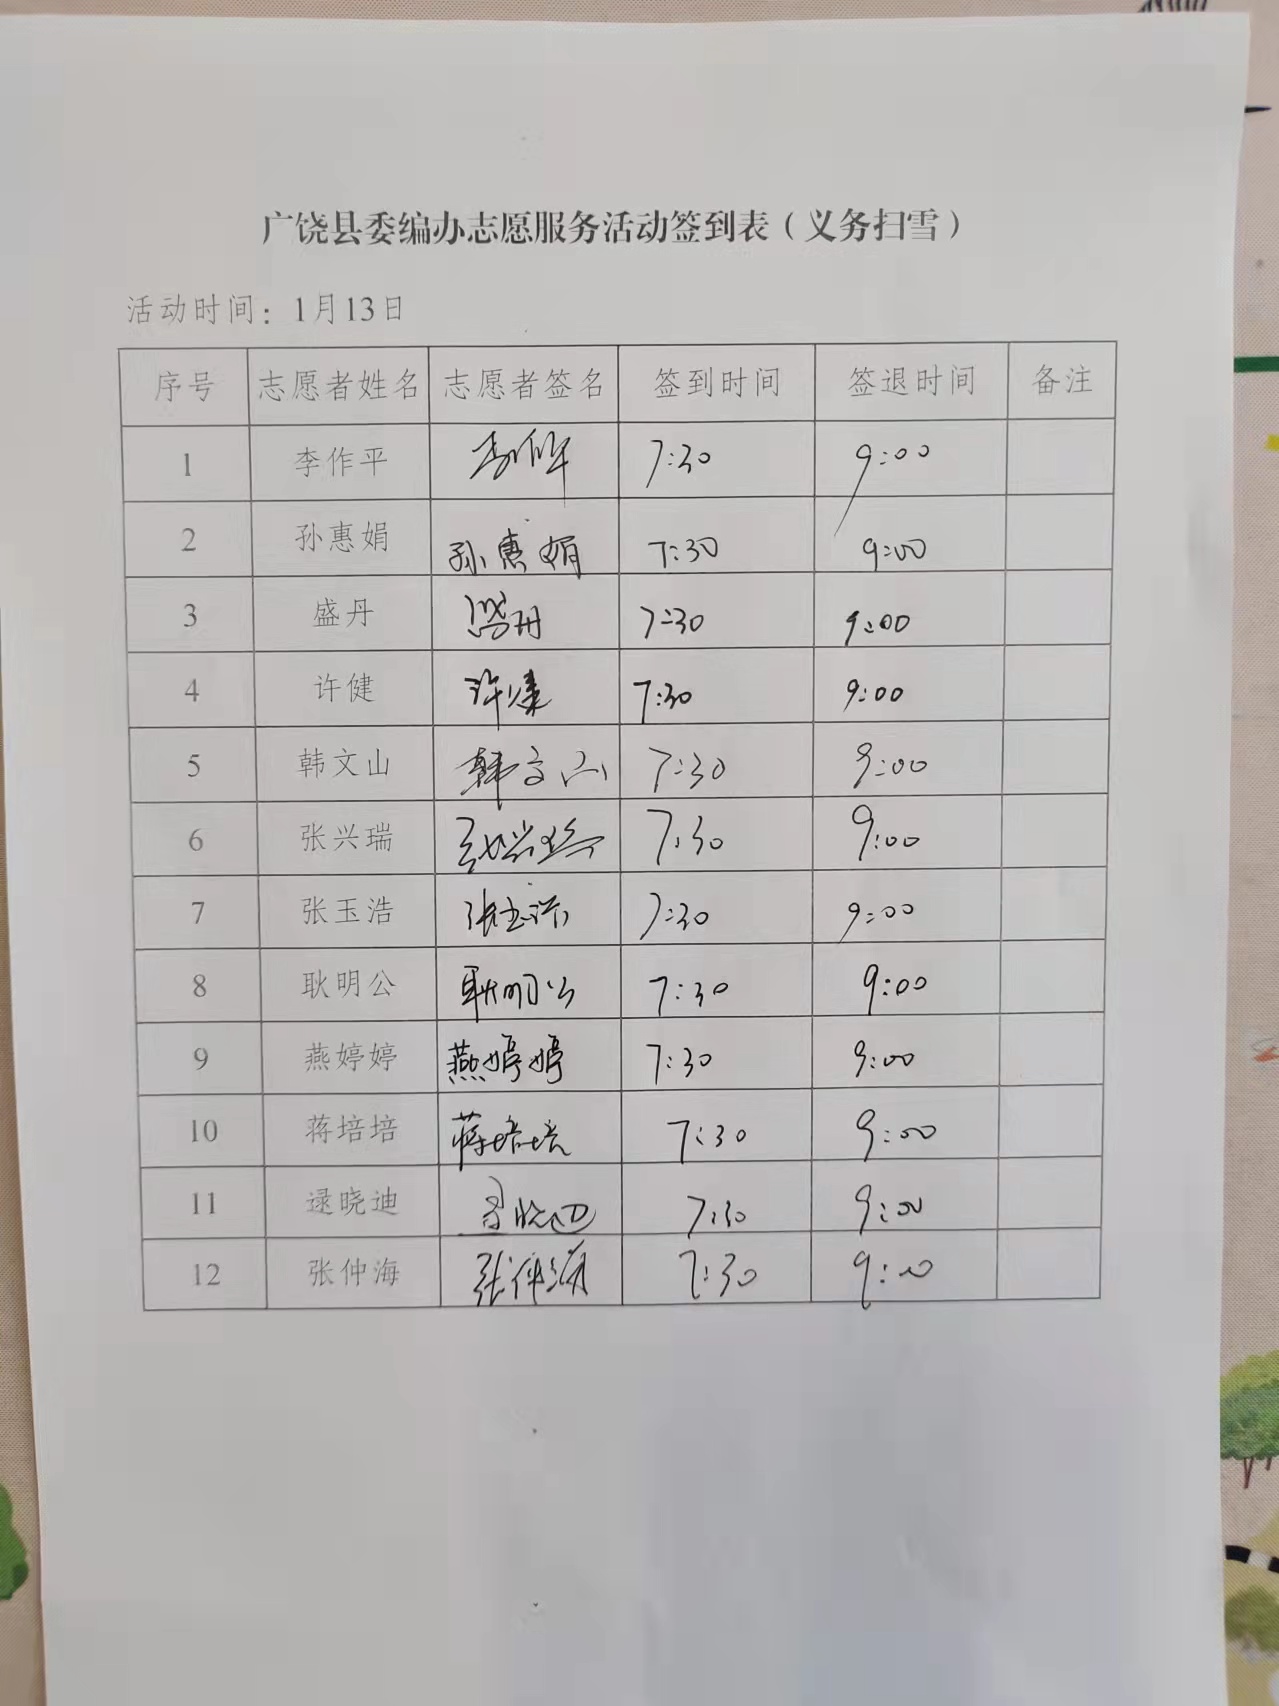 广饶县委编办志愿服务活动签到表（义务扫雪）
活动时间：1月13日
序号 志愿者姓名 志愿者签名 签到时间 签退时间 备注
1 李作平 李作平 7:30 9:00
2 孙惠娟 孙惠娟 7:30 9:00
3 盛丹 盛丹 7:30 9:00
4 许健 许健 7:30 9:00
5 韩文山 韩文山 7:30 9:00
6 张兴瑞 张兴瑞 7:30 9:00
7 张玉浩 张玉浩 7:30 9:00
8 耿明公 耿明公 7:30 9:00
9 燕婷婷 燕婷婷 7:30 9:00
10 蒋培培 蒋培培 7:30 9:00
11 逯晓迪 逯晓迪 7:30 9:00
12 张仲海 张仲海 7:30 9:00